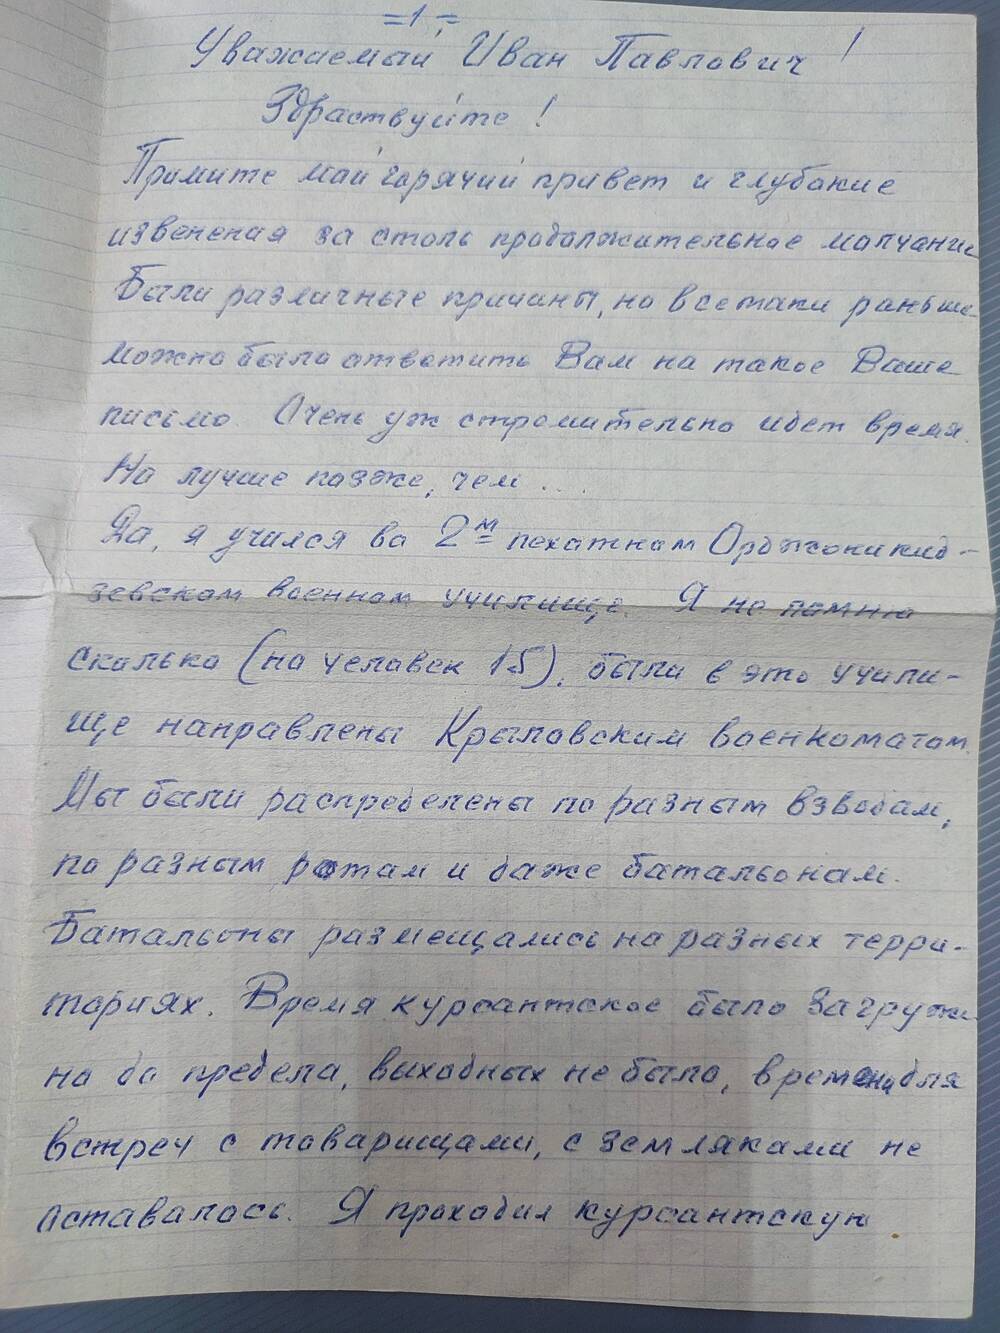 =1=
Уважаемый Иван Павлович!
Здраствуйте!
Примите мой горячий привет и глубокие
извенения за столь продолжительное молчание
Были различные причины, но всетаки раньше
можно было ответить Вам на такое Ваше
письмо. Очень уж стромительно идет время.
Но лучше позже, чем ...
Да, я учился во 2м пехатном Орджоникид-
зевском военном училище. Я не помню
сколько (но человек 15), были в это учили-
ще направлены Крыловским военкоматом.
Мы были распределены по разным взводам,
по разным ротам и даже батальонам.
Батальоны размещались на разных терри-
ториях. Время курсантское было загруже
но до предела, выходных не было, времени для
встреч с товарищами, с земляками не
оставалось. Я проходил курсантскую